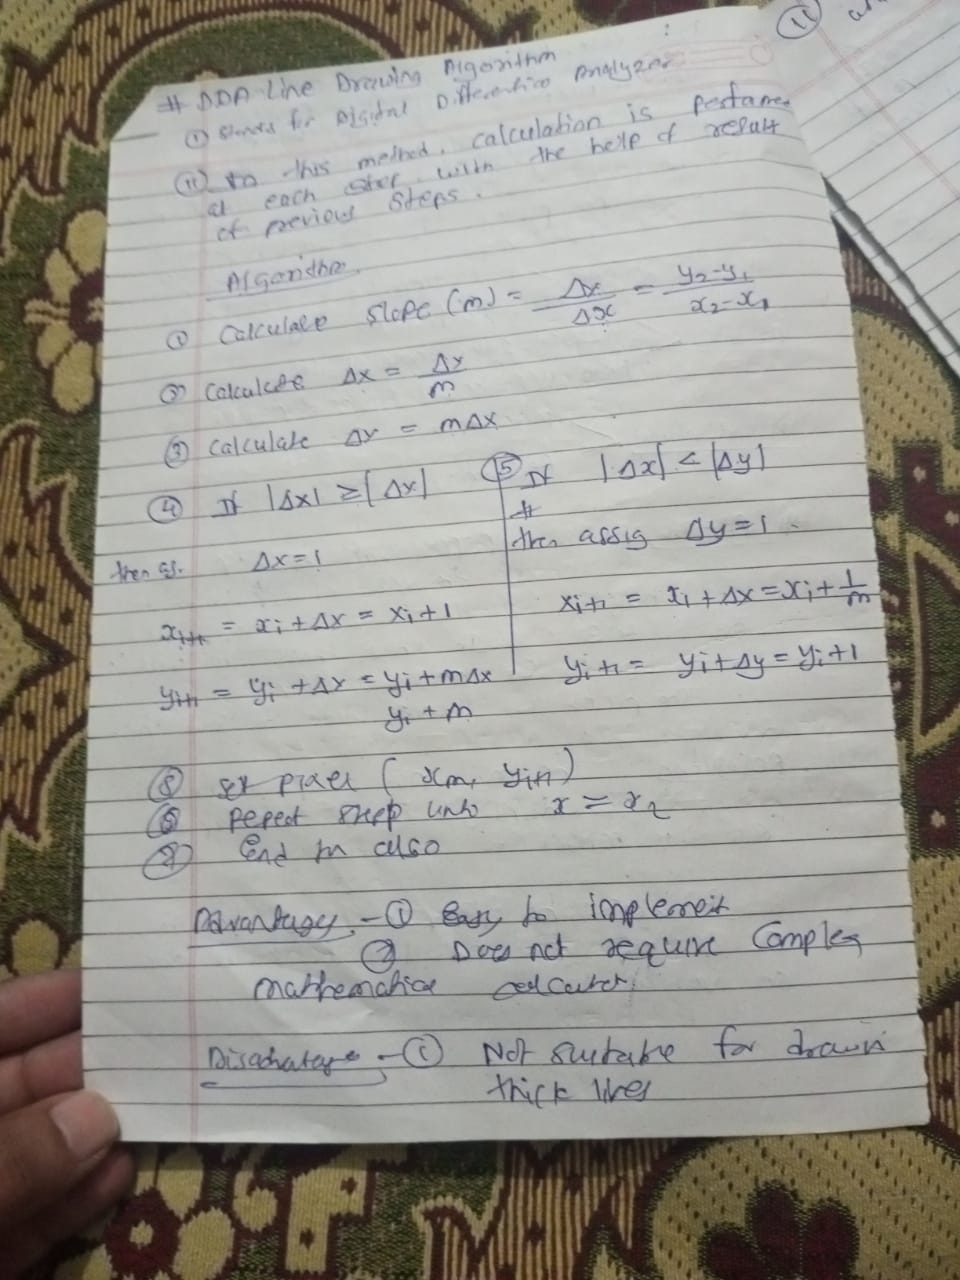 # DDA Line Drawing Algorithm
① Stands for Digital Differentice Analyzer
② In this method, calculation is perfomed
at each step with the help of result
of previous steps.
Algorithm
① Calculate slope (m) = Δy/Δx = y₂-y₁/x₂-x₁
② Calculate Δx = Δy/m
③ Calculate Δy = mΔx
④ If |Δx| ≥ |Δy|
then as. Δx = 1
xᵢ₊₁ = xᵢ + Δx = xᵢ + 1
yᵢ₊₁ = yᵢ + Δy = yᵢ + mΔx
yᵢ + m
⑤ If |Δx| < |Δy|
then assig Δy = 1
xᵢ₊₁ = xᵢ + Δx = xᵢ + 1/m
yᵢ₊₁ = yᵢ + Δy = yᵢ + 1
set pixel (xᵢ₊₁, yᵢ₊₁)
⑥ Repeat step unto x = x₂
End
Advantage - ① Easy to implement
② Does not require Complex
mathematica
Disadvatage - ① Not suitable for drawin
thick lines
⑪